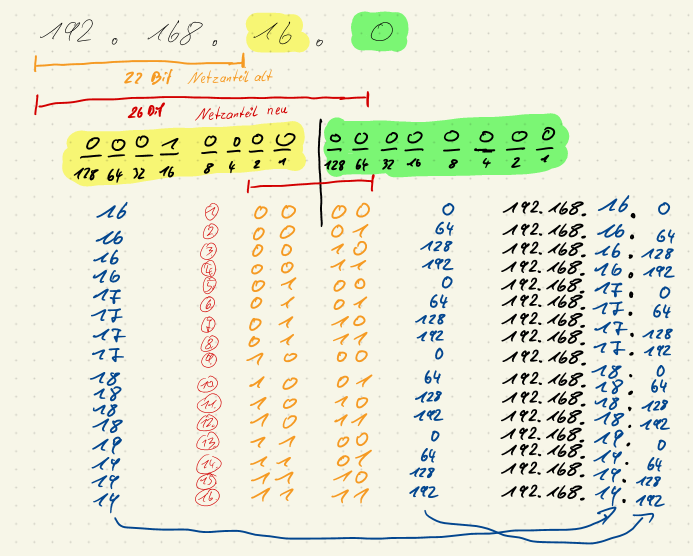 192. 168. 16. 0
22 Bit Netzanteil alt
26 Bit Netzanteil neu
0 0 0 1 0 0 0 0 0 0 0 0 0 0 0 0
128 64 32 16 8 4 2 1 128 64 32 16 8 4 2 1
16 1 0 0 0 0 0 192.168. 16. 0
16 2 0 0 0 1 64 192.168. 16. 64
16 3 0 0 1 0 128 192.168. 16. 128
16 4 0 0 1 1 192 192.168. 16. 192
17 5 0 1 0 0 0 192.168. 17. 0
17 6 0 1 0 1 64 192.168. 17. 64
17 7 0 1 1 0 128 192.168. 17. 128
17 8 0 1 1 1 192 192.168. 17. 192
18 9 1 0 0 0 0 192.168. 18. 0
18 10 1 0 0 1 64 192.168. 18. 64
18 11 1 0 1 0 128 192.168. 18. 128
18 12 1 0 1 1 192 192.168. 18. 192
19 13 1 1 0 0 0 192.168. 19. 0
19 14 1 1 0 1 64 192.168. 19. 64
19 15 1 1 1 0 128 192.168. 19. 128
19 16 1 1 1 1 192 192.168. 19. 192